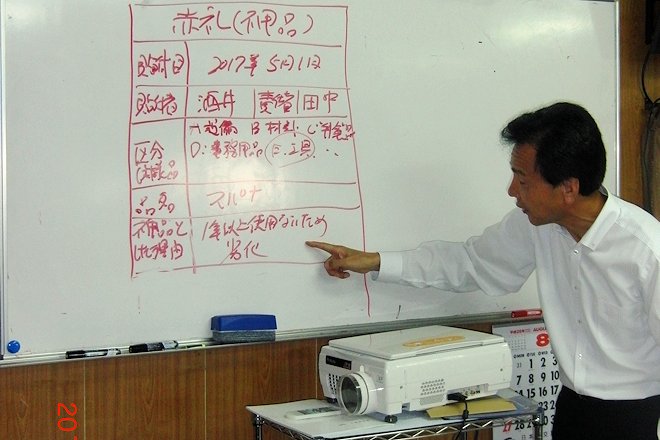 赤札(不用品)
貼付日 2017年 5月1日
貼付者 酒井 責管 田中
区分 A 設備 B 材料 C 半製品
(対象品) D:事務用品 E.工具
品名 スパナ
不用品と 1年以上使用ないため
した理由 劣化
AUGUST
8